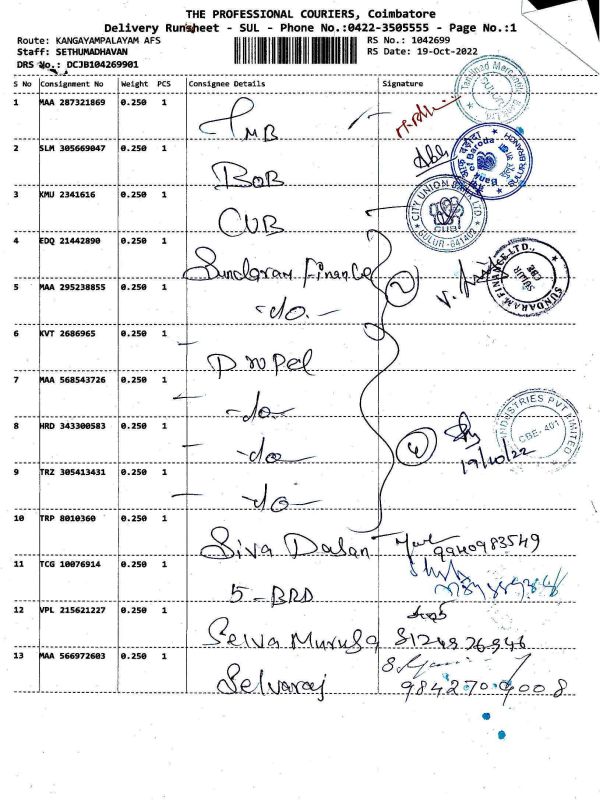 THE PROFESSIONAL COURIERS, Coimbatore
Delivery Runsheet - SUL - Phone No.:0422-3505555 - Page No.:1
Route: KANGAYAMPALAYAM AFS RS No.: 1042699
Staff: SETHUMADHAVAN RS Date: 19-Oct-2022
DRS No.: DCJB104269901
S No Consignment No Weight PCS Consignee Details Signature
1 MAA 287321869 0.250 1 TMB
2 SLM 305669047 0.250 1 BOB
Bank of Baroda
SULUR BRANCH
3 KMU 2341616 0.250 1 CUB
CITY UNION BANK LTD.
CUB
SULUR-641402
4 EDQ 21442890 0.250 1 Sundaram Finance
SUNDARAM FINANCE LTD.,
SULUR
5 MAA 295238855 0.250 1 -do- 2
6 KVT 2686965 0.250 1 Propel
7 MAA 568543726 0.250 1 -do-
INDUSTRIES PVT LIMITED
CBE- 401
8 HRD 343300583 0.250 1 -do- 4
19/10/22
9 TRZ 305413431 0.250 1 -do-
10 TRP 8010360 0.250 1 Siva Dasan 9940983549
11 TCG 10076914 0.250 1 5-BRD
12 VPL 215621227 0.250 1 Selva Muruga
13 MAA 566972603 0.250 1 Selvaraj 9842709008